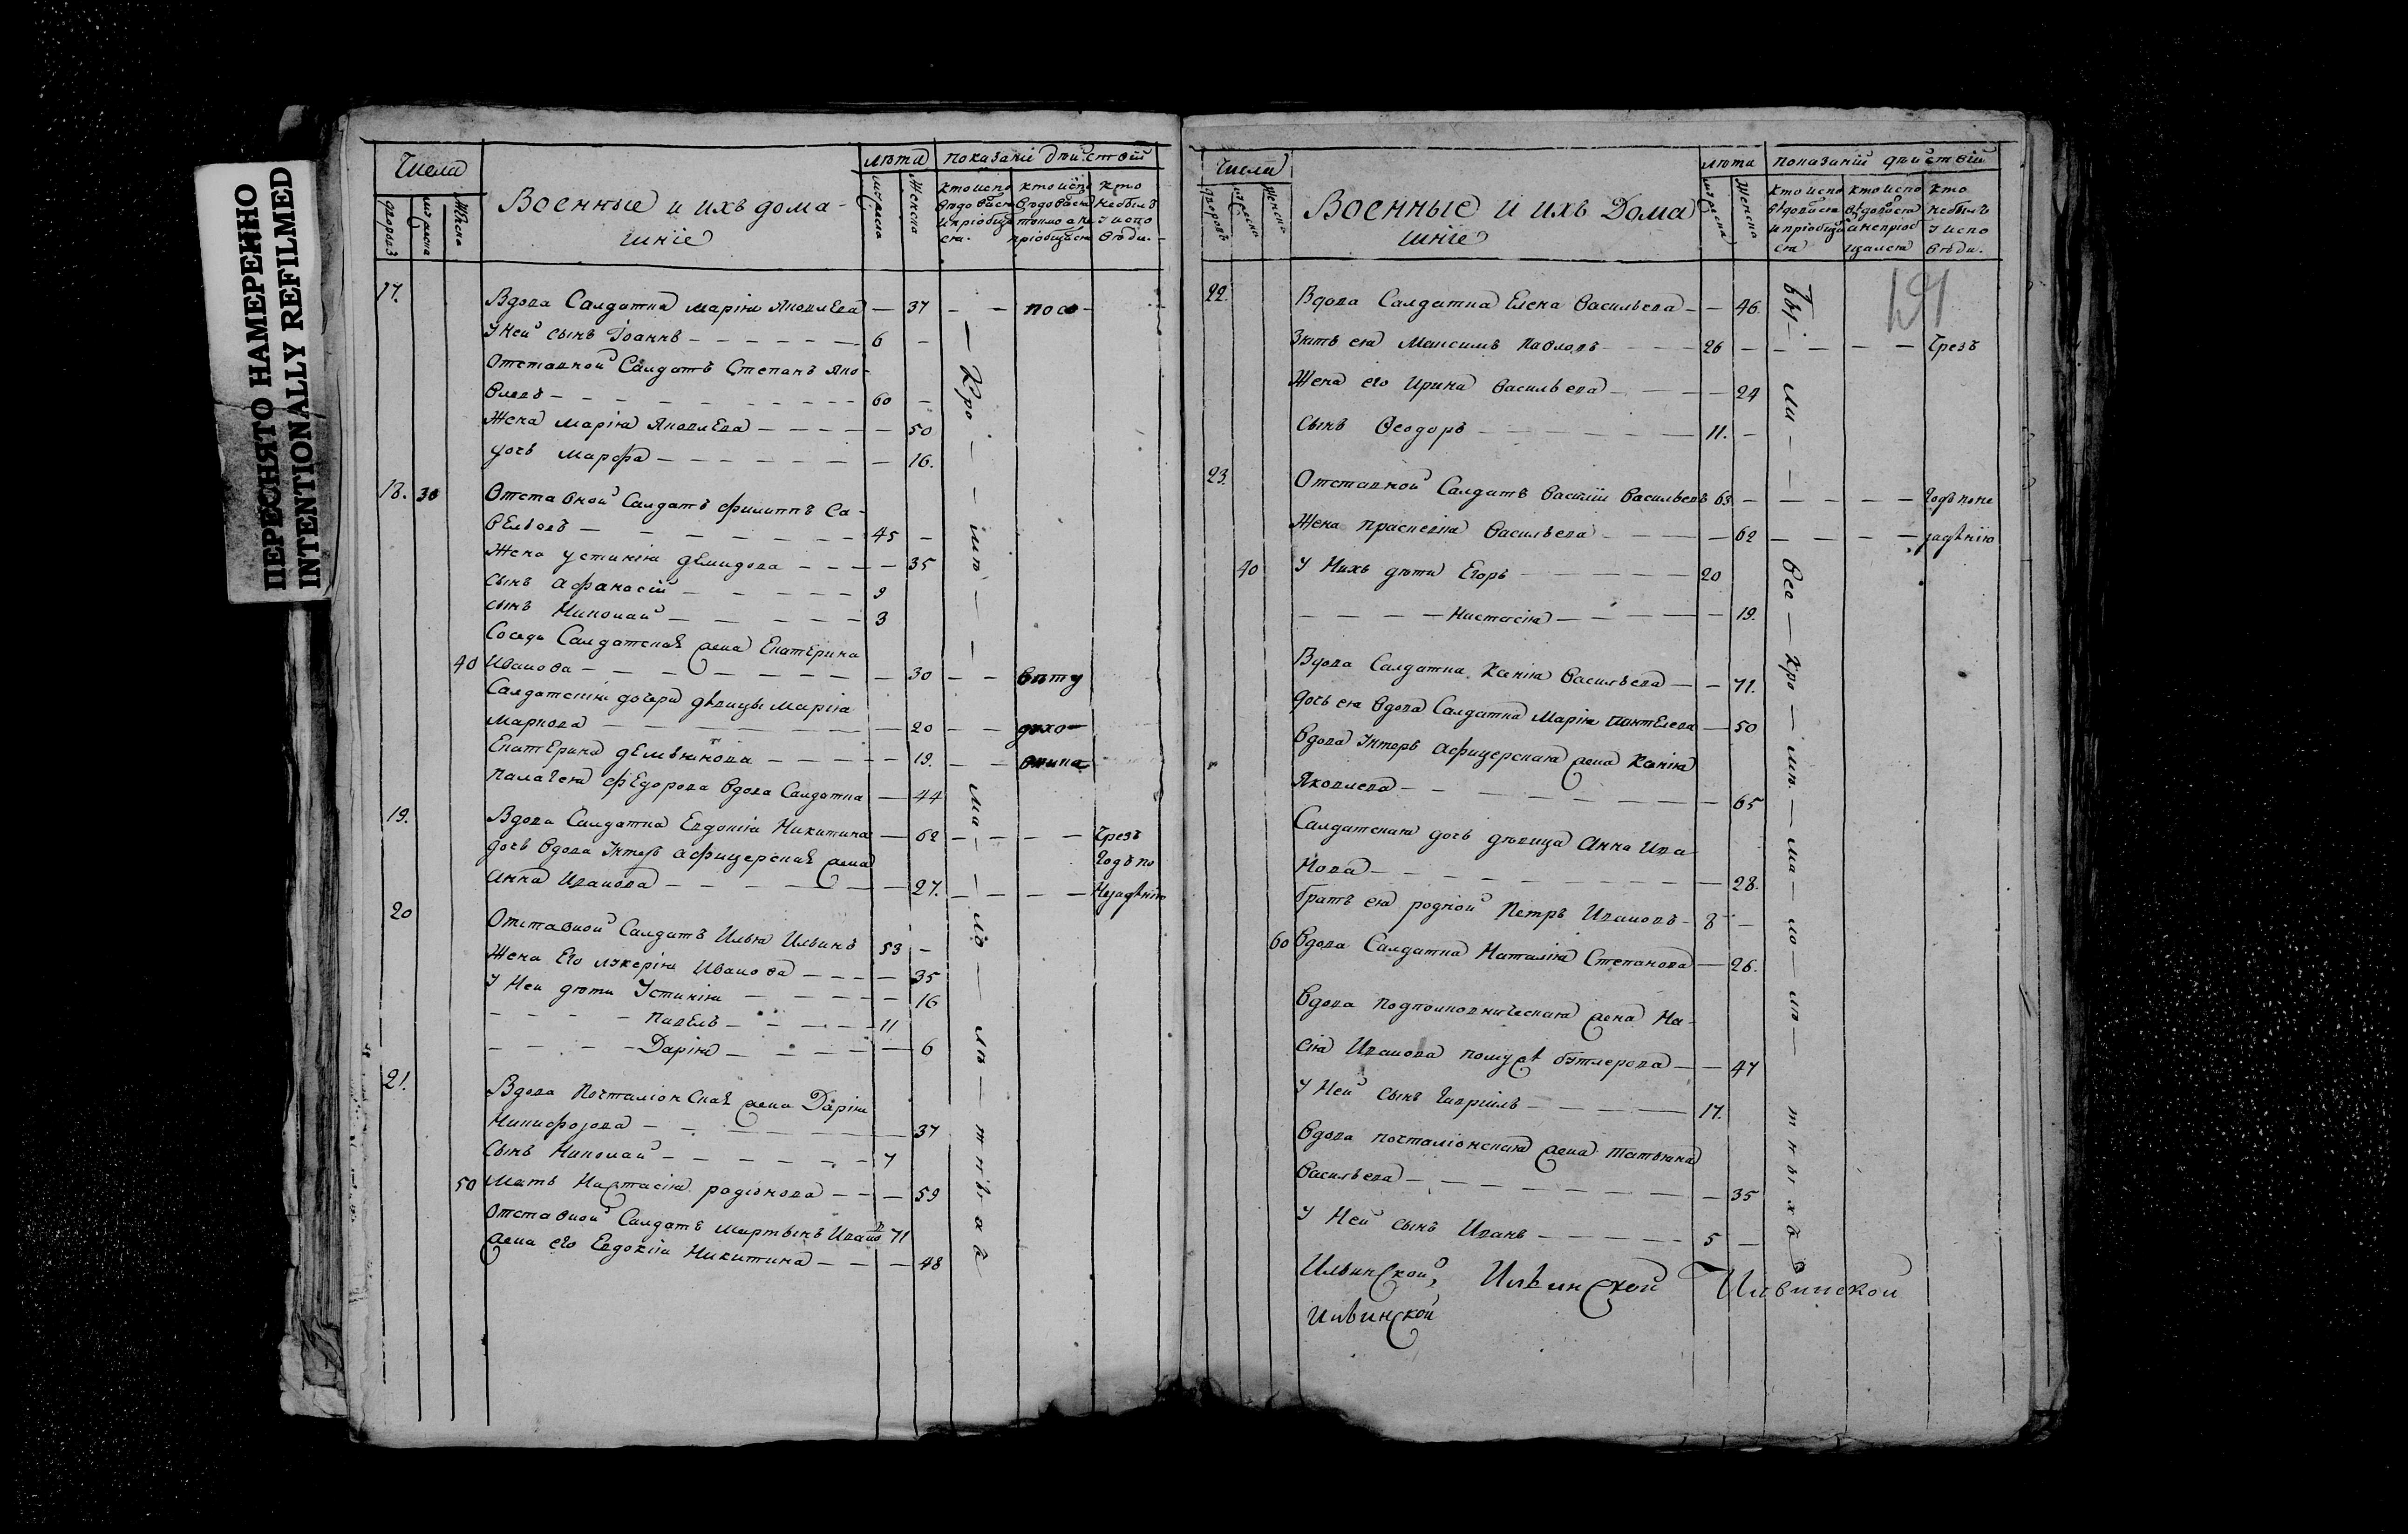 ПЕРЕСНЯТО НАМЕРЕННО
INTENTIONALLY REFILMED
Числа
лѣта
показаніе дѣйствій
дворовъ
мужеска
женска
Военные и ихъ дома-
шніе
мужеска
женска
кто испо
вѣдовался
и пріобщил
ся.
кто исп
вѣдовался
токмо а не
пріобщался
кто
не былъ
у испо
вѣди.
17.
Вдова Салдатка Марія Яковлева — 37 — — по со-
У Ней сынъ Іоаннъ — 6 —
Отставной Салдатъ Степанъ Яко-
влевъ — 60 —
Жена Марія Яковлева — 50
дочь Марфа — 16.
18. 30 Отставной Салдатъ Филиппъ Са-
вельевъ — 45 —
Жена Устинія Демидова — 35
сынъ Афанасій — 9
сынъ Николай — 3
Соседи Салдатская жена Екатерина
40 Иванова — 30 — — вѣту
Салдатскія дочери дѣвицы Марія
Маркова — 20 — — духо-
Екатерина — 19. — — вника
Палагея Федорова вдова Салдатка — 44
19. Вдова Салдатка Евдокія Никитина — 62 — — — Чрезъ
дочь вдова Унтеръ афицерская жена
годъ по
Анна Иванова — 27. — — — Нерадѣнію
20
Отставной Салдатъ Илья Ильинъ 53 —
Жена Его Лукерія Иванова — 35
У Ней дѣти Устинія — 16
Павелъ — 11
Дарія — 6
21.
Вдова Почталіонская жена Дарія
Никифорова — 37
Сынъ Николай — 7
50 Мать Настасія Родіонова — 59
Отставной Салдатъ Мартынъ Ивановъ 71
жена его Евдокія Никитина — 48
— Кро — — мѣ — — ма — ло — лѣ — т н ы х ъ
Числа
лѣта
показаній дѣйствій
дворовъ
мужеска
женска
Военные и ихъ Дома
шніе
мужеска
женска
кто испо
вѣдовался
и пріобщил
ся
кто испо
вѣдовался
а не пріоб
щался
кто
не былъ
у испо
вѣди.
191
22.
Вдова Салдатка Елена Васильева — 46.
Зять ея Максимъ Павловъ — 26 — — — — Чрезъ
Жена его Ирина Васильева — 24
Сынъ Ѳеодоръ — 11. —
23.
Отставной Салдатъ Василій Васильевъ 63 — — — — годъ по не
Жена Прасковія Васильева — 62 — — — — радѣнію
40 У Нихъ дѣти Егоръ — 20
— — — — Настасія — 19.
Вдова Салдатка Ксенія Васильева — 71.
дочь ея вдова Салдатка Марія Пантелева — 50
Вдова Унтеръ афицерская жена Ксенія
Яковлева — 65
Салдатская дочь дѣвица Анна Ива
Нова — 28.
братъ ея родной Петръ Ивановъ — 8 —
60 Вдова Салдатка Наталія Степанова — 26.
Вдова подполковническая жена
Иванова Бутлерова — 47
У Ней Сынъ Гавріилъ — 17.
Вдова почталіонская жена Татьяна
Васильева — 35
У Ней сынъ Иванъ — 5 —
Бы — ли — — Всѣ — Кро — мѣ — ма — ло — лѣ — т н ы х ъ
Ильинской, Ильинской Ильинской
Ильинской